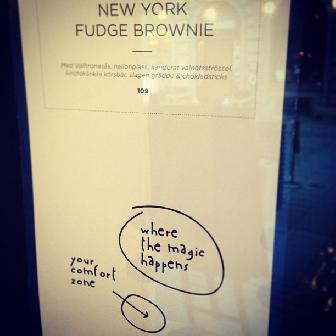 NEW YORK
FUDGE BROWNIE
Med Valhronasås, hallonglass, kanderat valnötsströssel,
körsbär, slagen grädde & chokladsticks
169
where
the magic
happens
your
comfort
zone